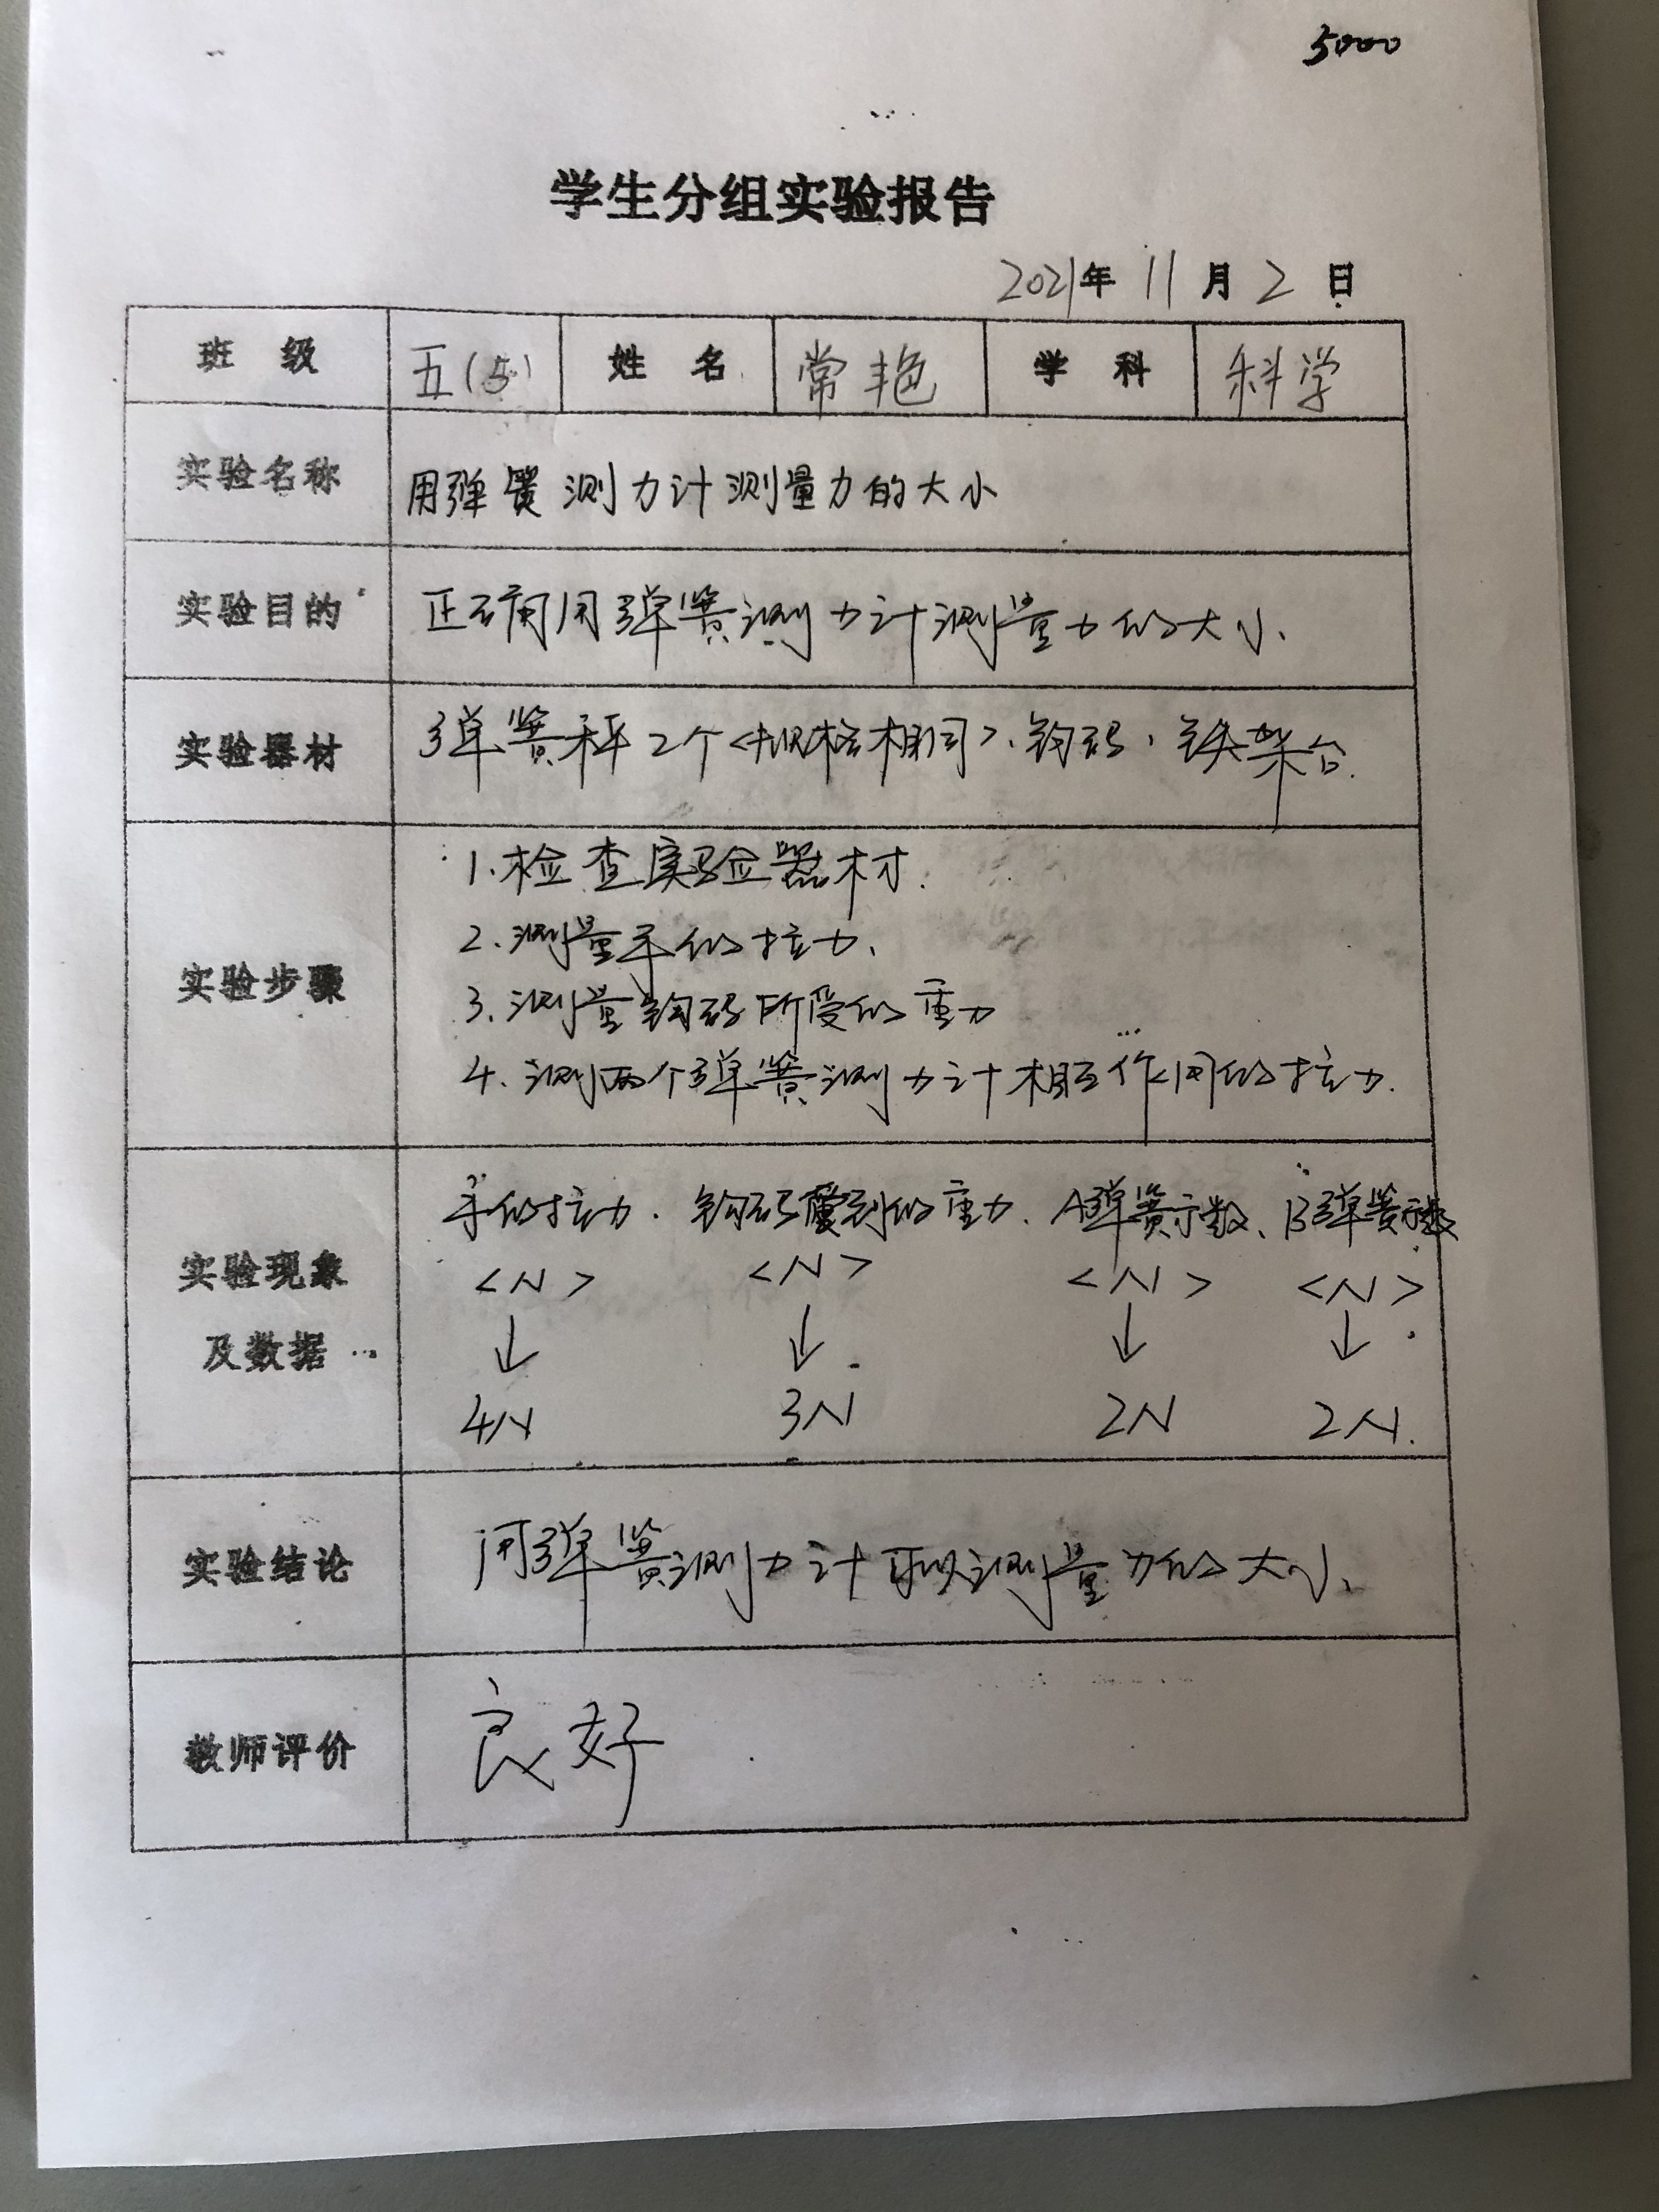 5000
学生分组实验报告
2021年 11 月 2 日
班 级 五(5) 姓 名 常艳 学 科 科学
实验名称 用弹簧测力计测量力的大小
实验目的 正确用弹簧测力计测量力的大小、
实验器材 弹簧秤2个<规格相同>、钩码、铁架台.
实验步骤
1.检查实验器材.
2.测量手的拉力、
3.测量钩码所受的重力
4.测两个弹簧测力计相互作用的拉力.
实验现象及数据
手的拉力. 钩码受到的重力. A弹簧示数、B弹簧示数
<N> <N> <N> <N>
↓ ↓ ↓ ↓
4N 3N 2N 2N.
实验结论 用弹簧测力计可以测量力的大小、
教师评价 良好